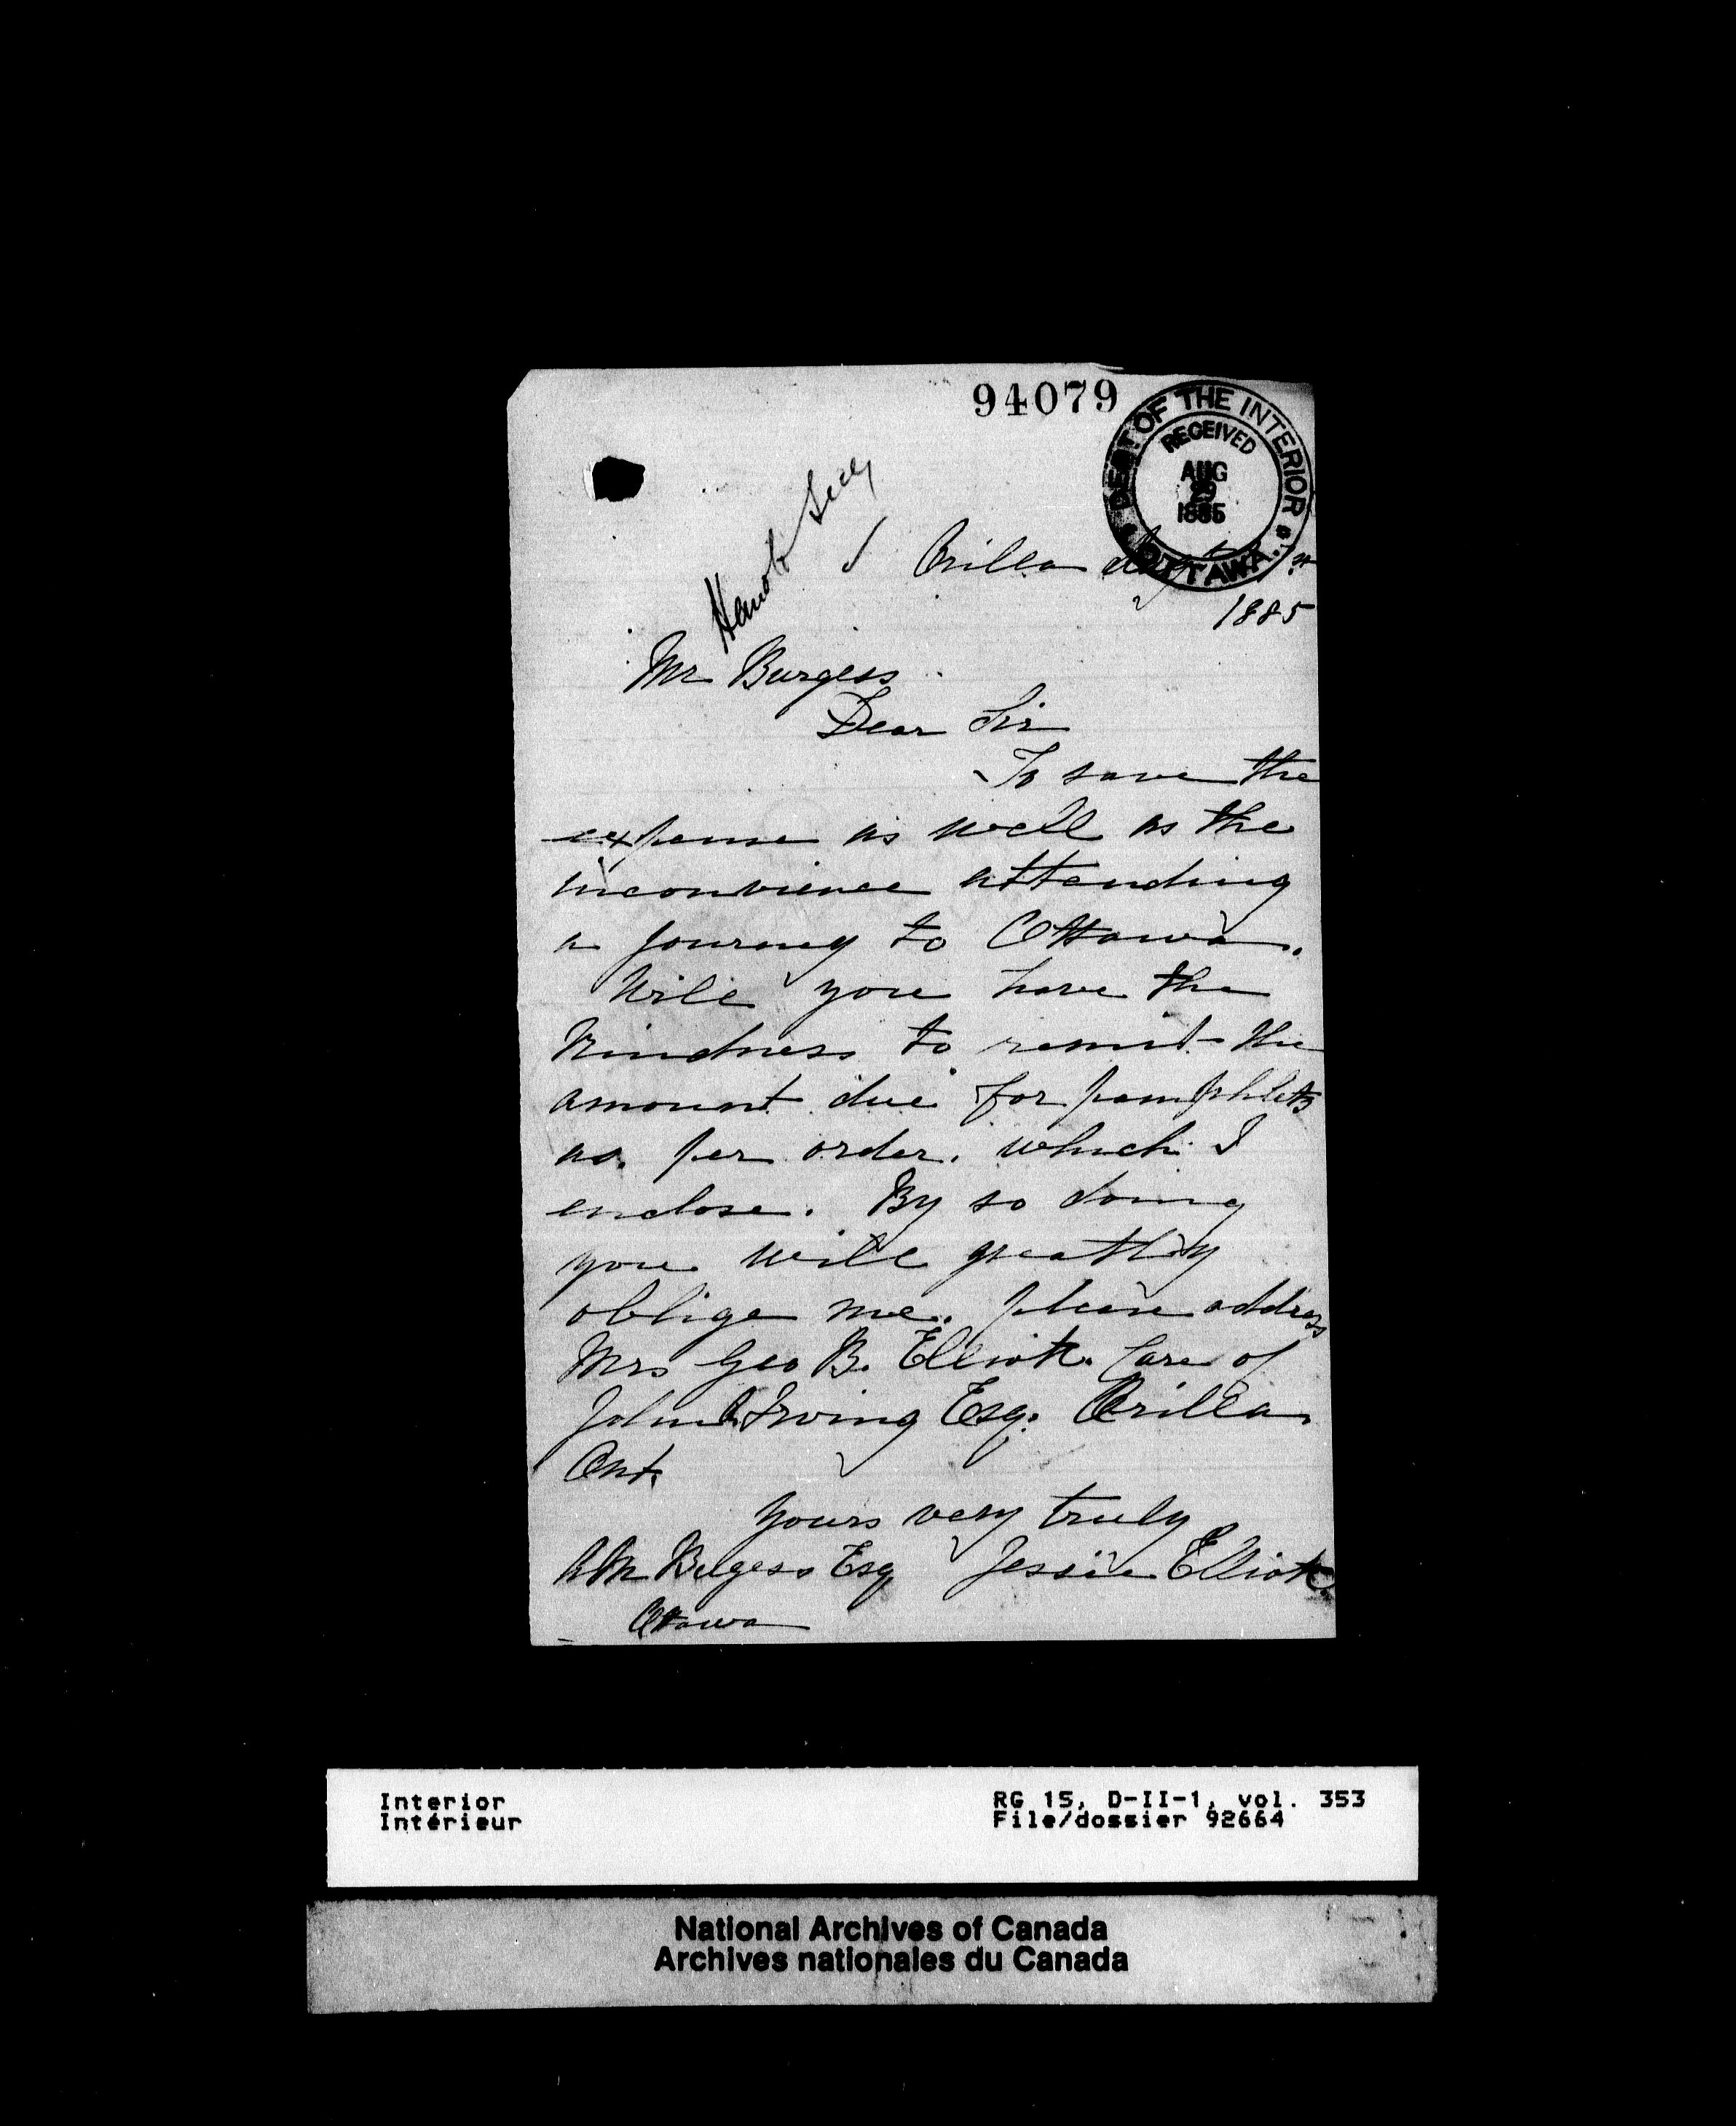 94079
DEPT OF THE INTERIOR
RECEIVED
AUG
29
1885
OTTAWA.
Orillia
1885
Mr Burgess
Dear Sir
To save the
expense as well as the
inconvience attending
a journey to Ottawa.
Will you have the
kindness to remit the
amount due for pamphlets
as per order. which I
enclose. By so doing
you will greatly
oblige me. please address
Mrs Geo B. Elliott. Care of
John Irving Esq. Orillia
Ont.
Yours very truly
A M Burgess Esq Jessie Elliott
Ottawa
Interior
Intérieur
RG 15, D-II-1, vol. 353
File/dossier 92664
National Archives of Canada
Archives nationales du Canada